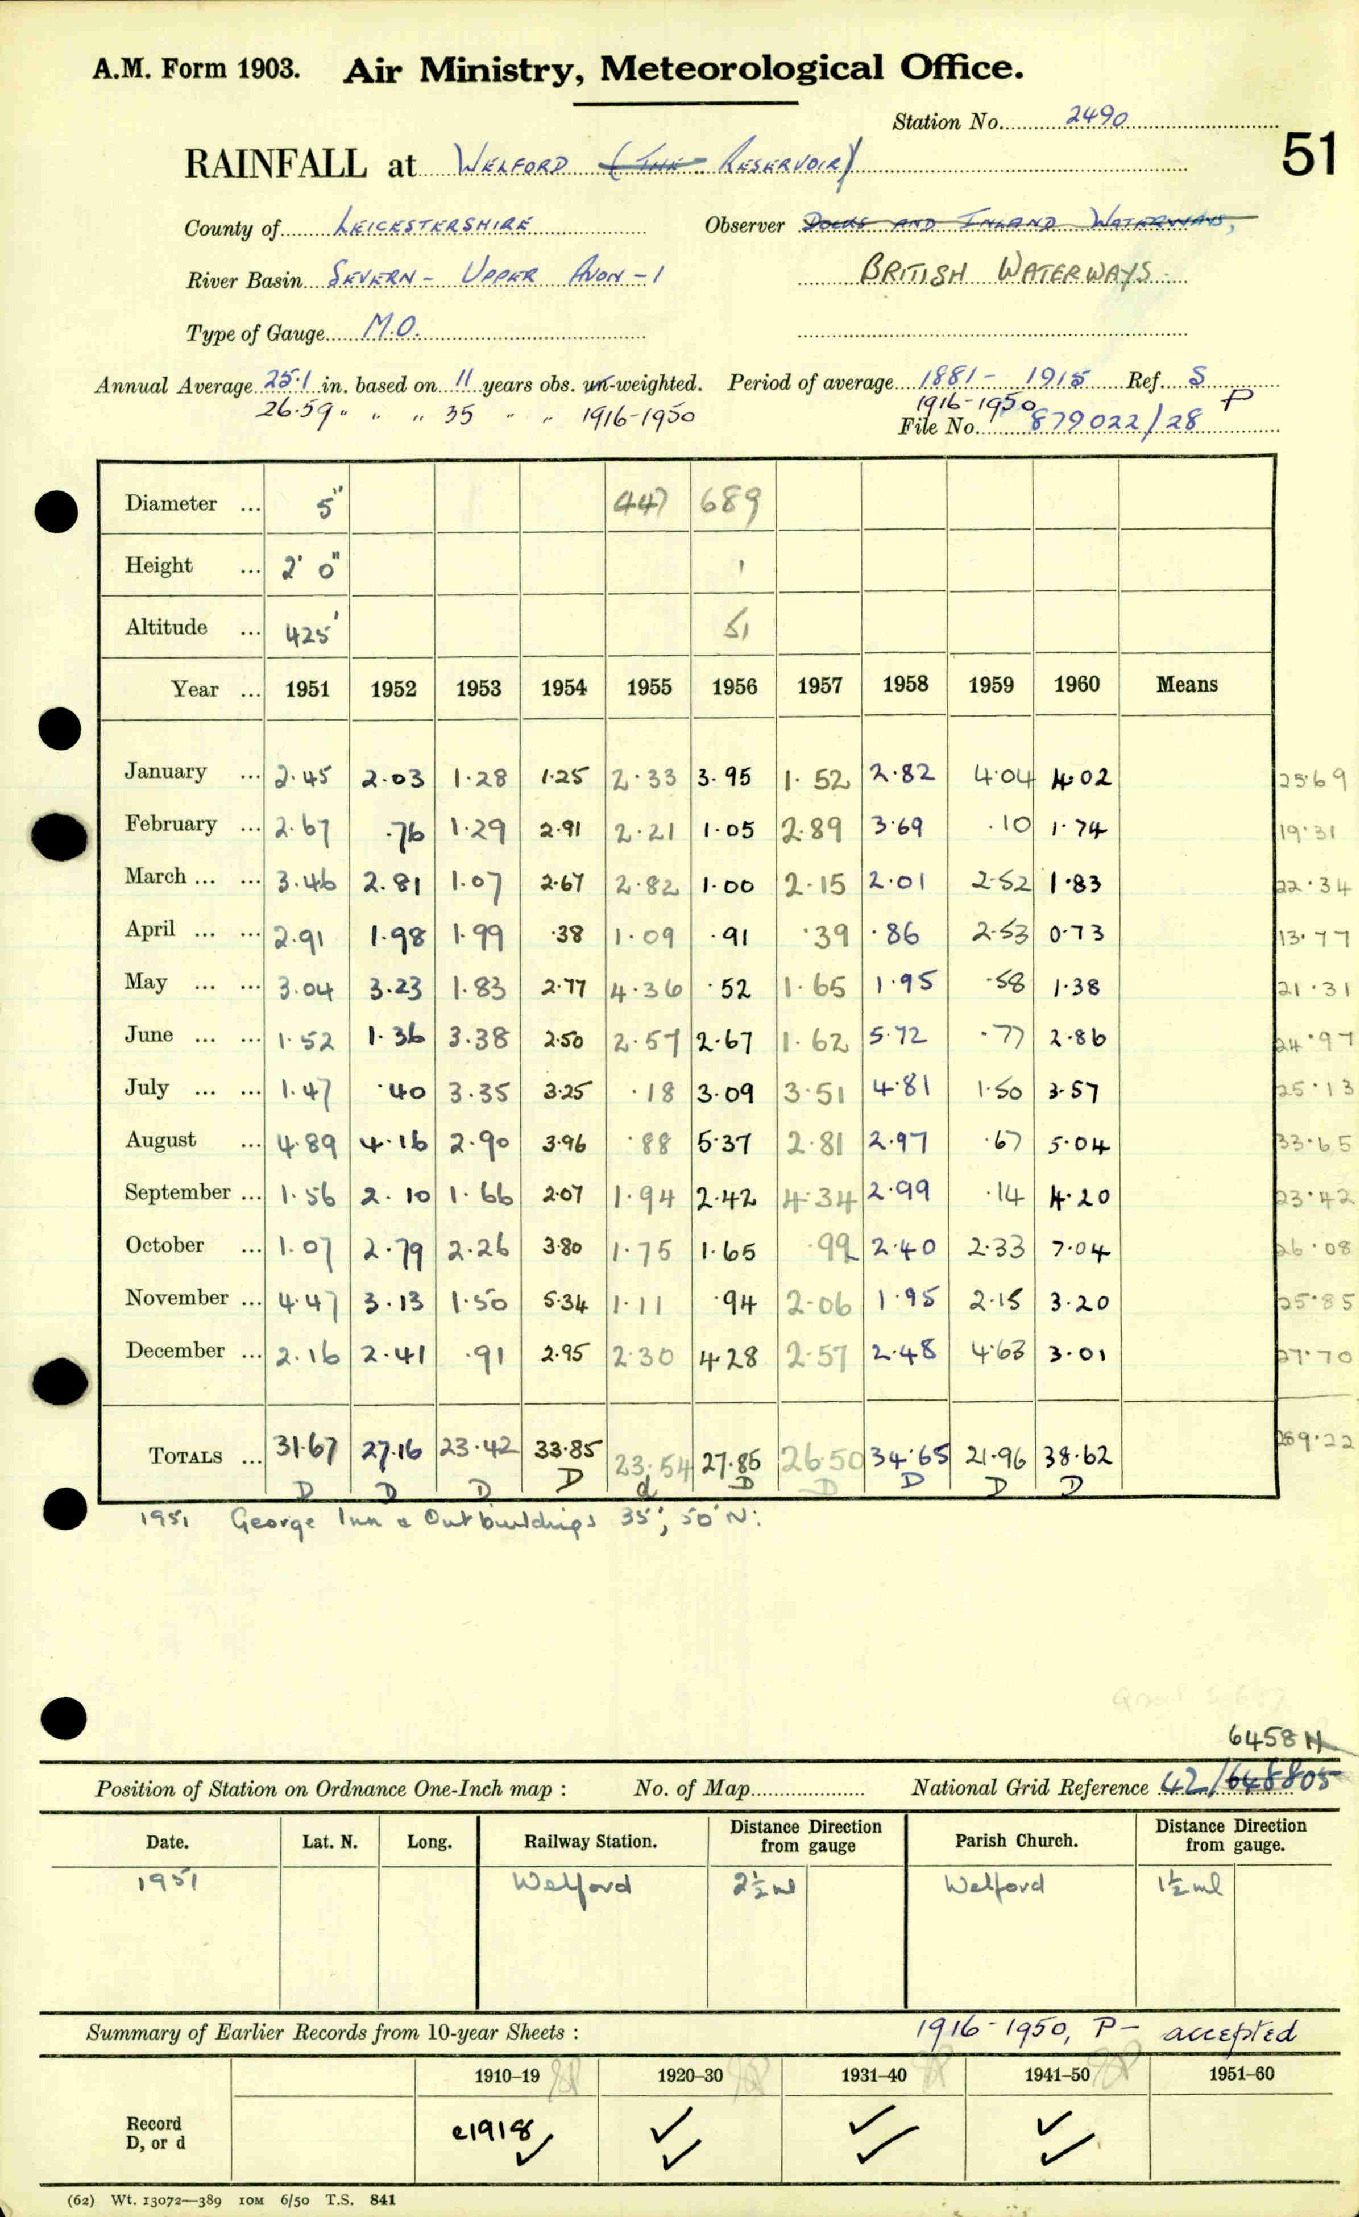 A.M. Form 1903. Air Ministry, Meteorological Office.
Station No. 2490
51
RAINFALL at WELFORD (THE RESERVOIR)
County of LEICESTERSHIRE Observer DOCKS AND INLAND WATERWAYS,
River Basin SEVERN - UPPER AVON - 1 BRITISH WATERWAYS
Type of Gauge M.O.
Annual Average 25.1 in. based on 11 years obs. un-weighted. Period of average 1881 - 1915 Ref. S
26.59 " " " 35 " " 1916-1950 1916-1950 P
File No. 879022/28
Diameter ... 5" 447 689
Height ... 2' 0" 1
Altitude ... 425' 51
Year ... 1951 1952 1953 1954 1955 1956 1957 1958 1959 1960 Means
January ... 2.45 2.03 1.28 1.25 2.33 3.95 1.52 2.82 4.04 4.02 25.69
February ... 2.67 .76 1.29 2.91 2.21 1.05 2.89 3.69 .10 1.74 19.31
March ... ... 3.46 2.81 1.07 2.67 2.82 1.00 2.15 2.01 2.52 1.83 22.34
April ... ... 2.91 1.98 1.99 .38 1.09 .91 .39 .86 2.53 0.73 13.77
May ... ... 3.04 3.23 1.83 2.77 4.36 .52 1.65 1.95 .58 1.38 21.31
June ... ... 1.52 1.36 3.38 2.50 2.57 2.67 1.62 5.72 .77 2.86 24.97
July ... ... 1.47 .40 3.35 3.25 .18 3.09 3.51 4.81 1.50 3.57 25.13
August ... 4.89 4.16 2.90 3.96 .88 5.37 2.81 2.97 .67 5.04 33.65
September ... 1.56 2.10 1.66 2.07 1.94 2.42 4.34 2.99 .14 4.20 23.42
October ... 1.07 2.79 2.26 3.80 1.75 1.65 .99 2.40 2.33 7.04 26.08
November ... 4.47 3.13 1.50 5.34 1.11 .94 2.06 1.95 2.15 3.20 25.85
December ... 2.16 2.41 .91 2.95 2.30 4.28 2.57 2.48 4.63 3.01 27.70
TOTALS ... 31.67 27.16 23.42 33.85 23.54 27.85 26.50 34.65 21.96 38.62 289.22
D D D D d D D D D D
1951 George Inn & Outbuildings 35', 50' N:
6458 N
Position of Station on Ordnance One-Inch map : No. of Map National Grid Reference 42/648805
Date. Lat. N. Long. Railway Station. Distance Direction from gauge Parish Church. Distance Direction from gauge.
1951 Welford 2½ ml Welford 1½ ml
Summary of Earlier Records from 10-year Sheets : 1916-1950, P- accepted
1910–19 1920–30 1931–40 1941–50 1951–60
Record
D, or d
e1918 ✓ ✓ ✓ ✓ ✓ ✓ ✓
(62) Wt. 13072—389 10M 6/50 T.S. 841